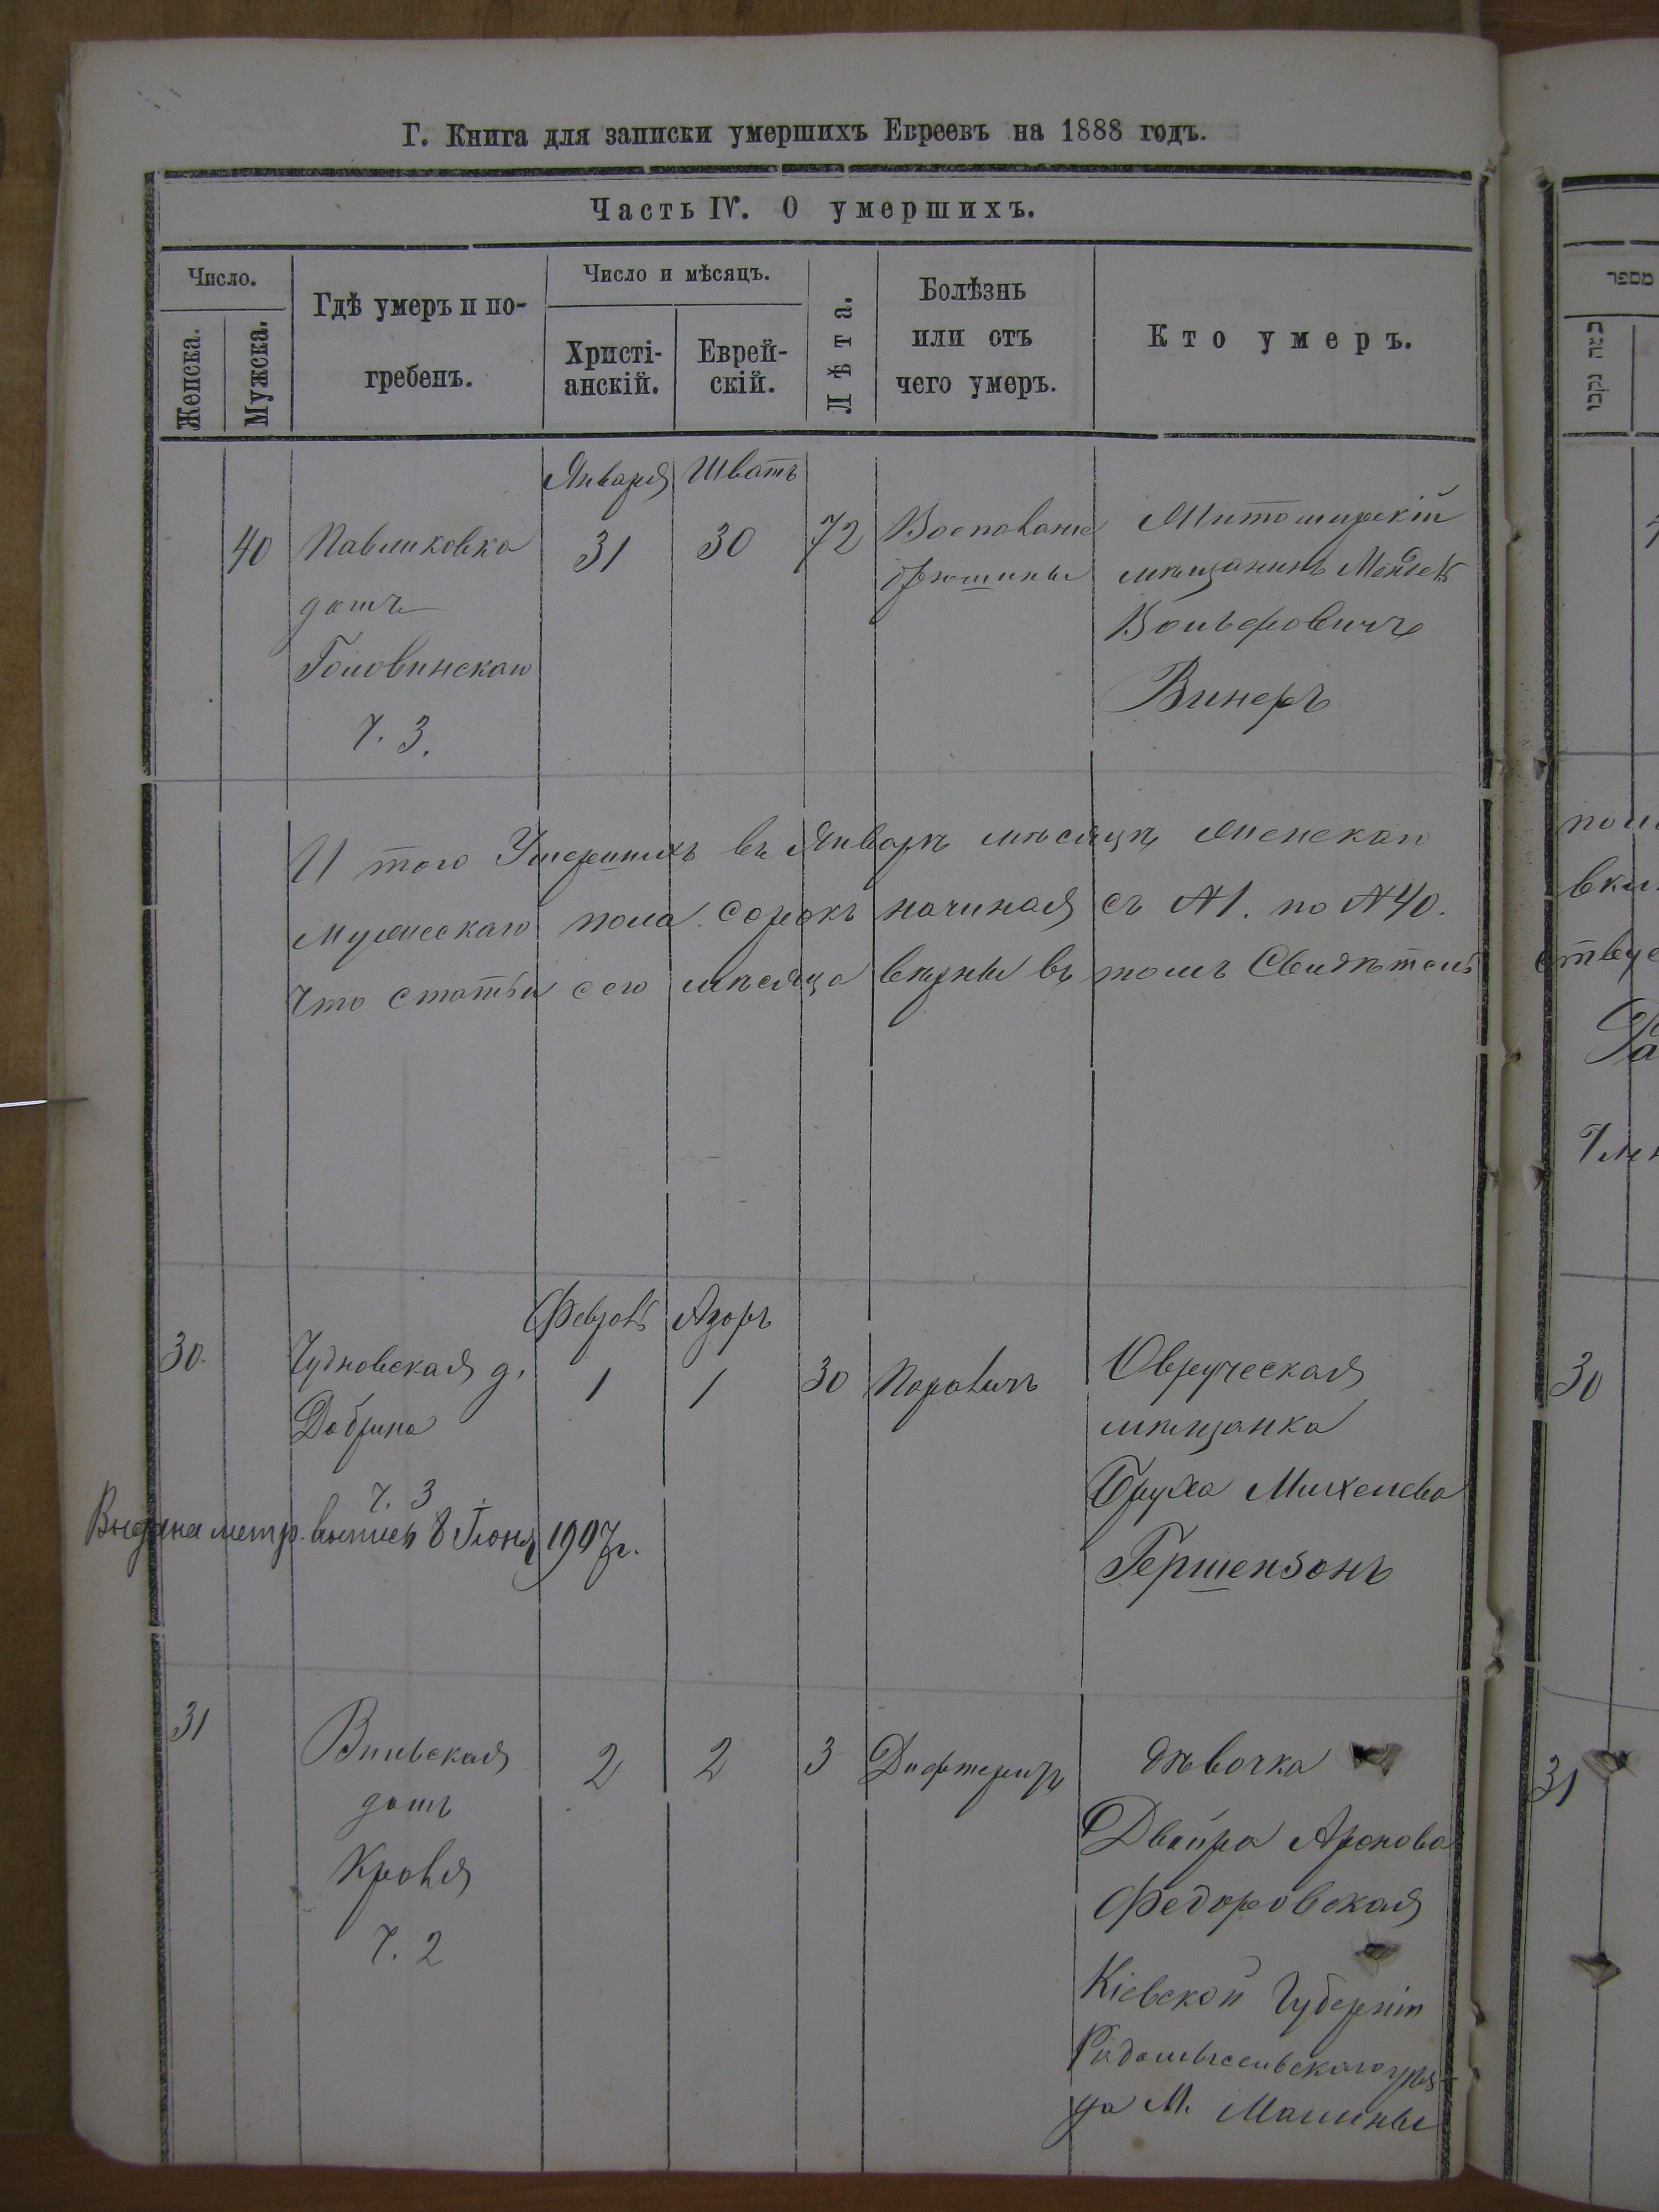 Г. Книга для записки умершихъ Евреевъ на 1888 годъ.
Часть IV. О умершихъ.
Число.
Женска.
Мужска.
Гдѣ умеръ и по-
гребенъ.
Число и мѣсяцъ.
Христі-
анскій.
Еврей-
скій.
Лѣта.
Болѣзнь
или отъ
чего умеръ.
Кто умеръ.
מספר
Января Шватъ
40 Павликовка 31 30 72 Воспаление Житомирскій
брюшины мѣщанинъ
домъ
Вольфовичъ
Головинскаго
Винеръ
ч. 3.
И того Умершихъ въ Январѣ мѣсяцѣ
Мужескаго пола сорокъ начиная съ №1. по №40.
Что статьи сего мѣсяца вѣрны въ томъ Свидѣтель
Феврал Адаръ
30. Чудновская д. 1 1 30 Параличъ Овручская
Добрина мѣщанка
ч. 3 Бруха Михелева
Выдана метр. выпись 8 Іюня 1907 г.
Гершензонъ
31 Вильская 2 2 3 Дифтеритъ дѣвочка
домъ
Двойра Аронова
Кравля
Федоровская
ч. 2
Кіевской Губерніи
Радомысльскаго уѣз-
да М. Малины
30
31